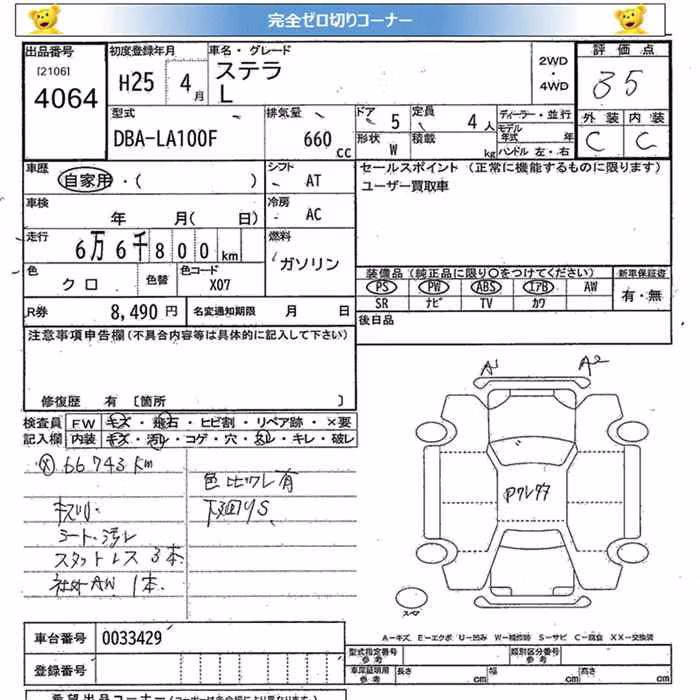 完全ゼロ切りコーナー
出品番号 初度登録年月 車名・グレード 2WD・4WD 評価点
[2106] 4064 H25 4月 ステラ 35
L
外装 内装
型式 排気量 ドア 5 定員 4人 ディーラー・並行
DBA-LA100F 660cc 形状 W 積載 kg モデル年式 年 C C
ハンドル 左・右
車歴 シフト セールスポイント (正常に機能するものに限ります)
自家用・( ) AT ユーザー買取車
車検 冷房
年 月( 日) AC
走行 燃料
6万6千800km ガソリン
色 色替 色コード 装備品(純正品に限り○をつけてください) 新車保証書
クロ X07 PS PW ABS エアB AW 有・無
SR ナビ TV カワ
R券 8,490円 名変通知期限 月 日 後日品
注意事項申告欄(不具合内容等は具体的に記入して下さい)
A1 A2
修復歴 有 〔箇所 〕
検査員 FW キズ・飛石・ヒビ割・リペア跡・×要
記入欄 内装 キズ・汚れ・コゲ・穴・欠し・キレ・破レ
66743km 色 有
下回りS
キズ小
シート汚レ
スタットレス3本
社外AW 1本
スペア
A−キズ E−エクボ U−凹み W−補修跡 S−サビ C−腐食 XX−交換済
車台番号 0033429
型式指定番号 参考 類別区分番号 参考
登録番号 車庫証明用 参考 長さ cm 幅 cm 高さ cm
希望出品コーナー